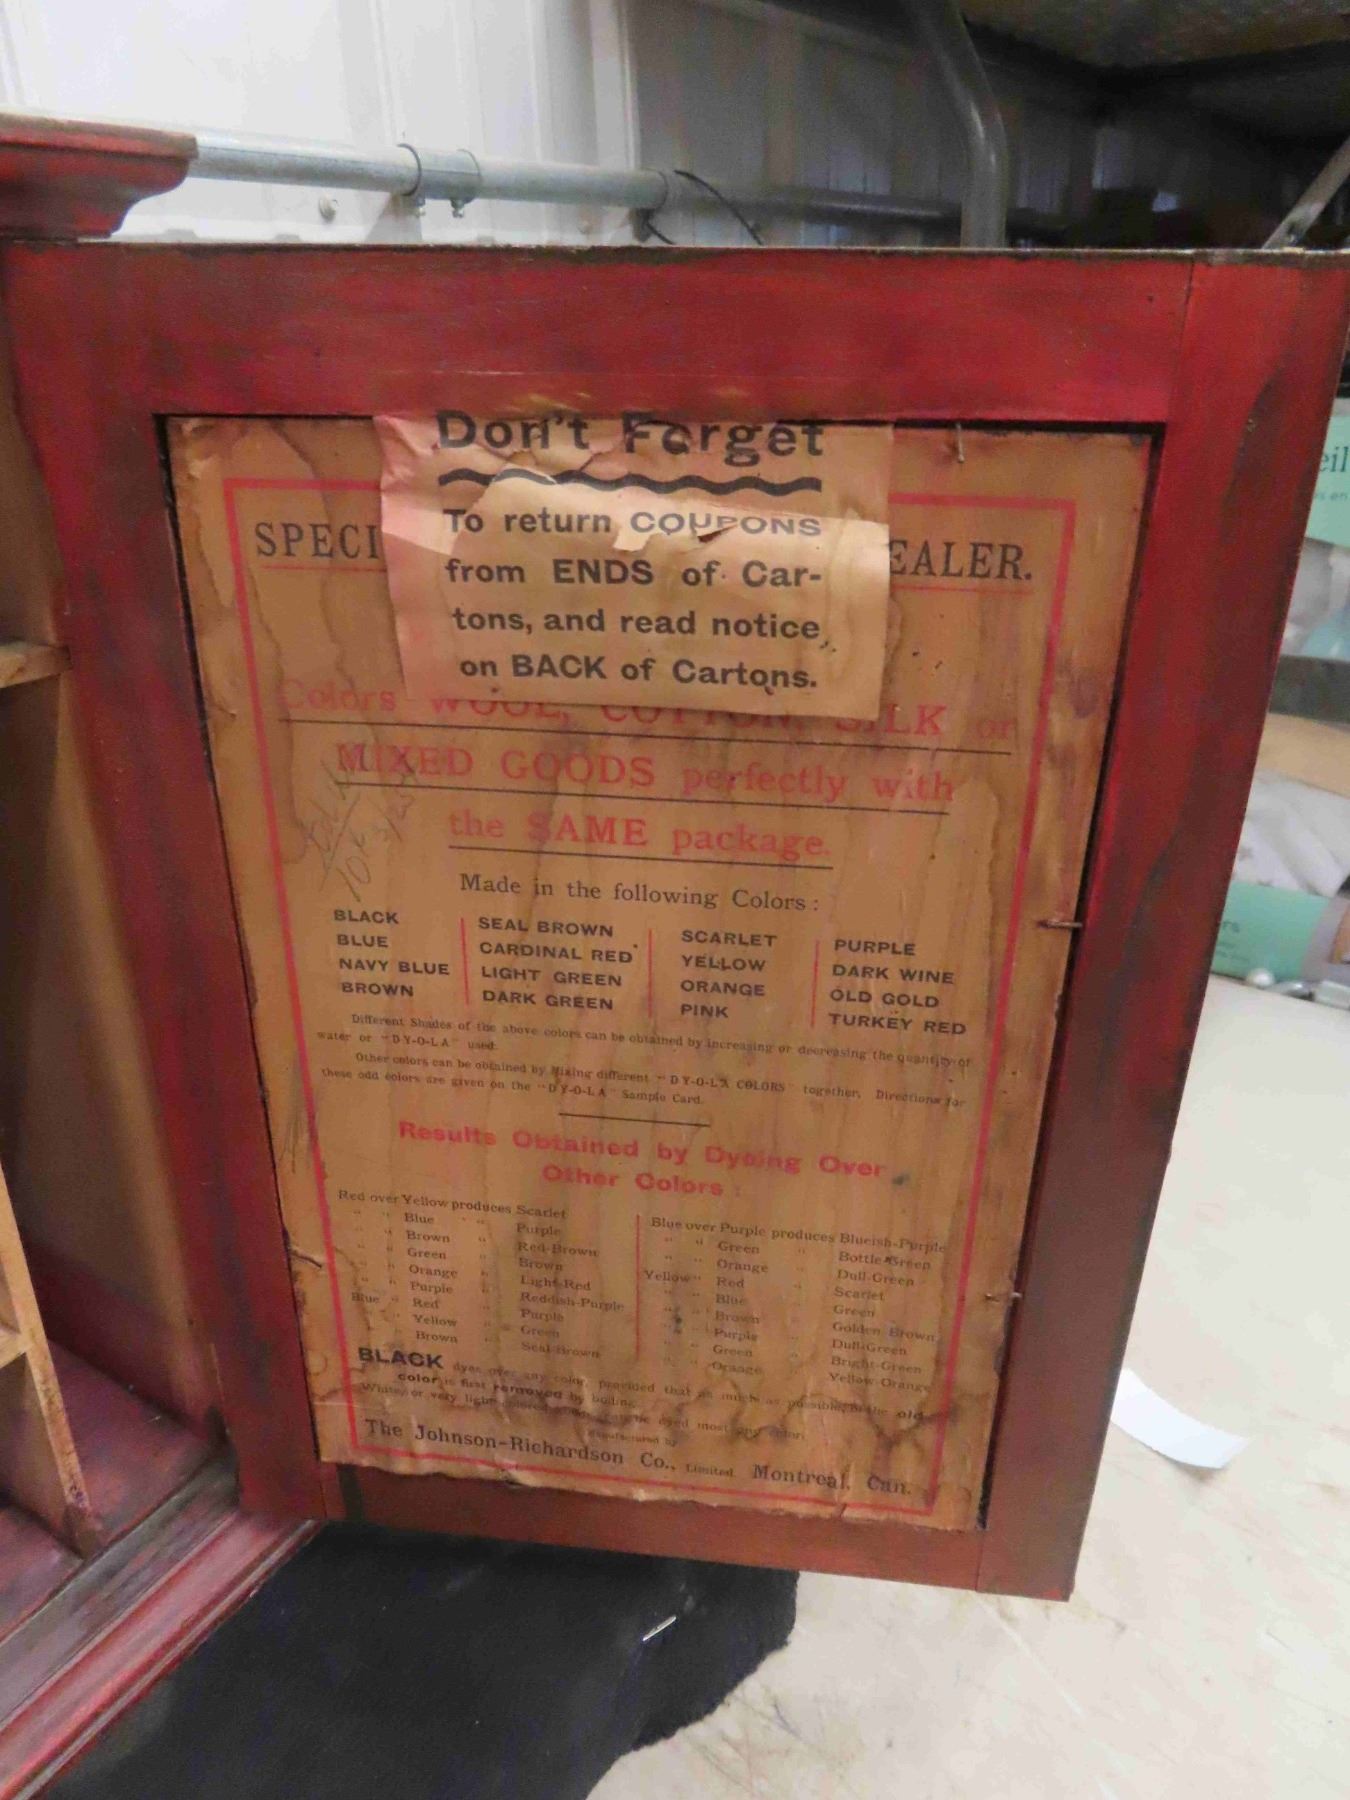 Don't Forget
To return COUPONS
from ENDS of Car-
tons, and read notice
on BACK of Cartons.
SPECI EALER.
Colors WOOL, COTTON, SILK or
MIXED GOODS perfectly with
the SAME package.
Made in the following Colors:
BLACK
BLUE
NAVY BLUE
BROWN
SEAL BROWN
CARDINAL RED
LIGHT GREEN
DARK GREEN
SCARLET
YELLOW
ORANGE
PINK
PURPLE
DARK WINE
OLD GOLD
TURKEY RED
Different Shades of the above colors can be obtained by increasing or decreasing the quantity of
water or "DY-O-LA" used.
Other colors can be obtained by Mixing different "DY-O-LA COLORS" together. Directions for
these odd colors are given on the "DY-O-LA" Sample Card.
Results Obtained by Dyeing Over
Other Colors:
Red over Yellow produces Scarlet
" " Blue " Purple
" " Brown " Red-Brown
" " Green " Brown
" " Orange " Light-Red
" " Purple " Reddish-Purple
Blue " Red " Purple
" " Yellow " Green
" " Brown " Seal-Brown
Blue over Purple produces Blueish-Purple
" " Green " Bottle-Green
" " Orange " Dull-Green
Yellow " Red " Scarlet
" " Blue " Green
" " Brown " Golden Brown
" " Purple " Dull-Green
" " Green " Bright-Green
" " Orange " Yellow-Orange
BLACK dyes over any color, provided that as much as possible, of the old
color is first removed by boiling.
White, or very light colored goods, can be dyed most any color.
Manufactured by
The Johnson-Richardson Co., Limited. Montreal, Can.